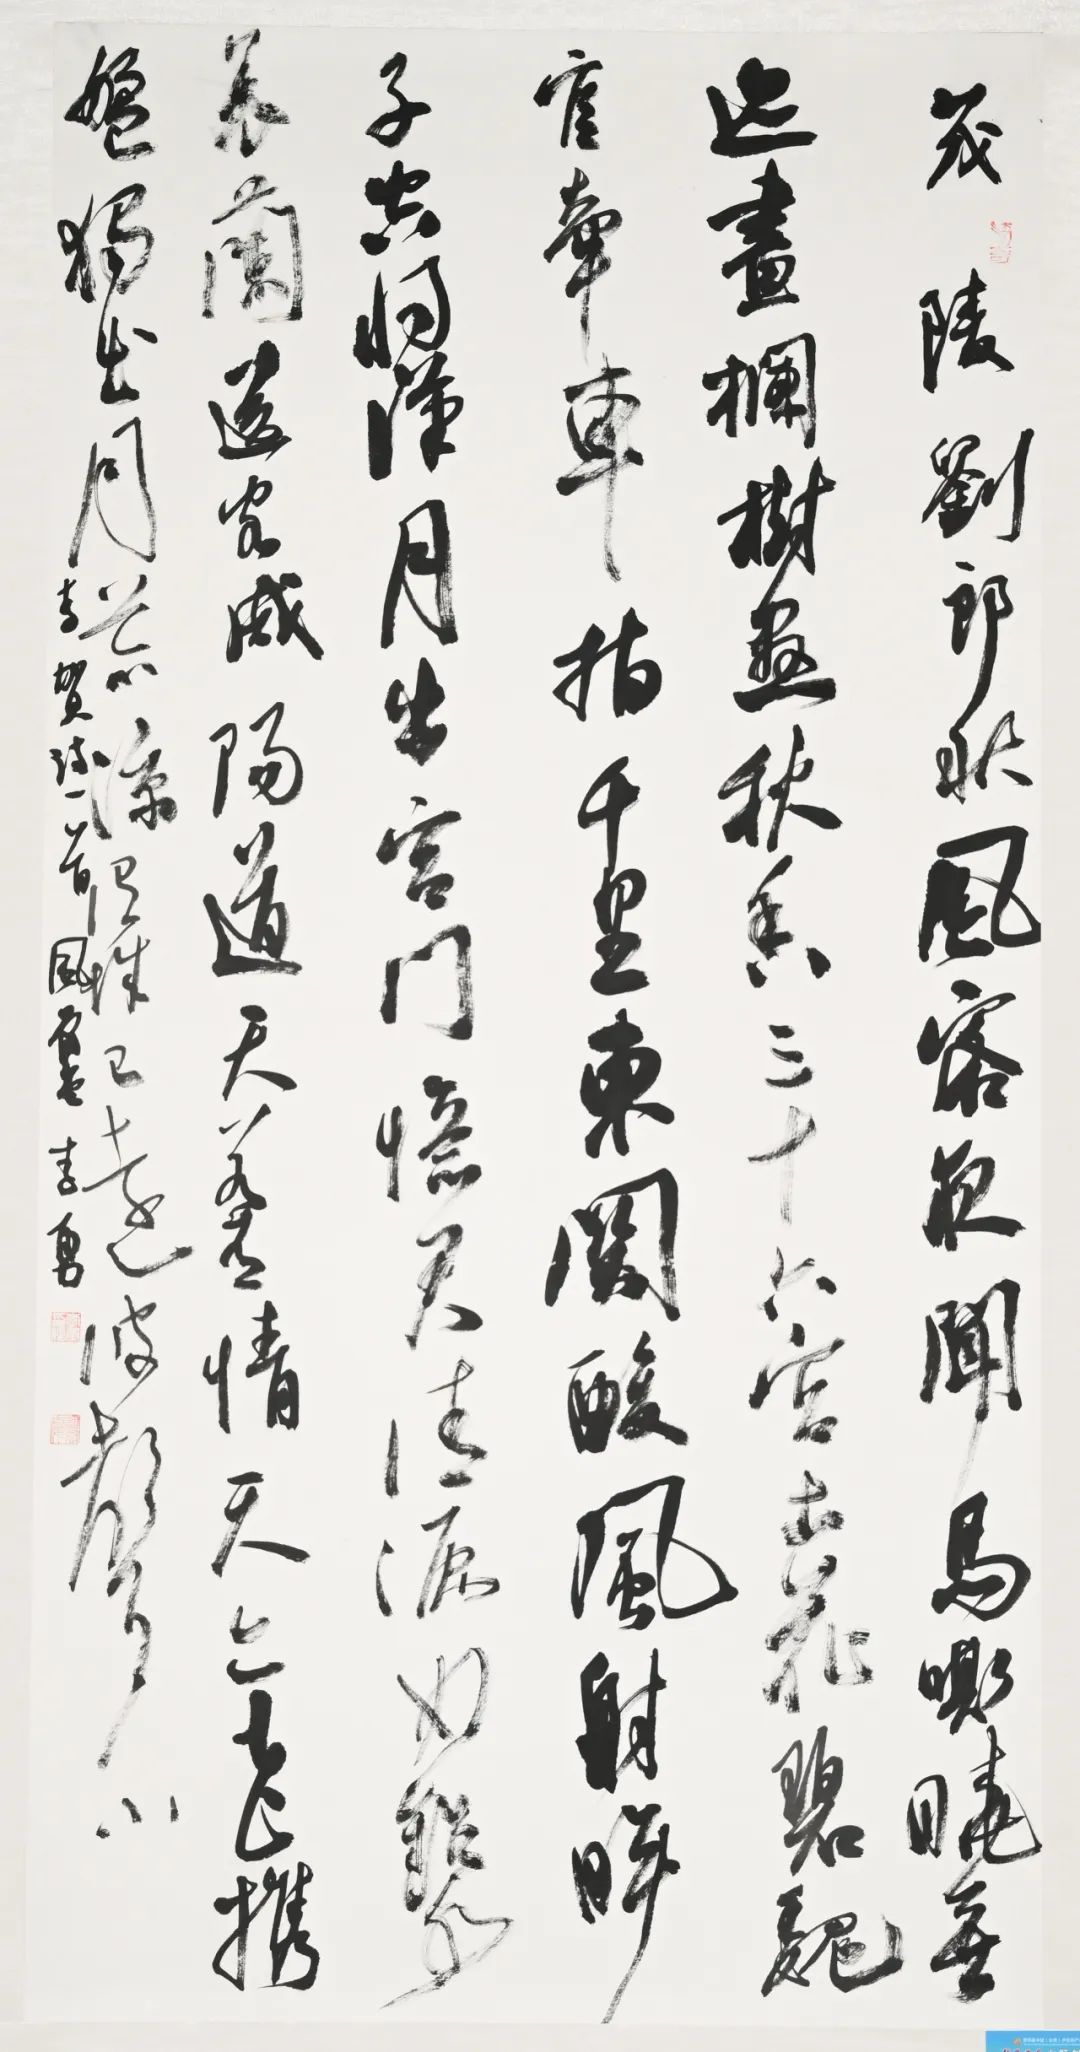 茂陵劉郎秋風客夜聞馬嘶曉無
迹畫欄樹懸秋香三十六宮土花碧魏
官牽車指千里東關酸風射眸
子空將漢月出宮門憶君清淚如鉛水
衰蘭送客咸陽道天若有情天亦老攜
盤獨出月荒涼渭城已遠波聲小
李賀詩一首風李勇